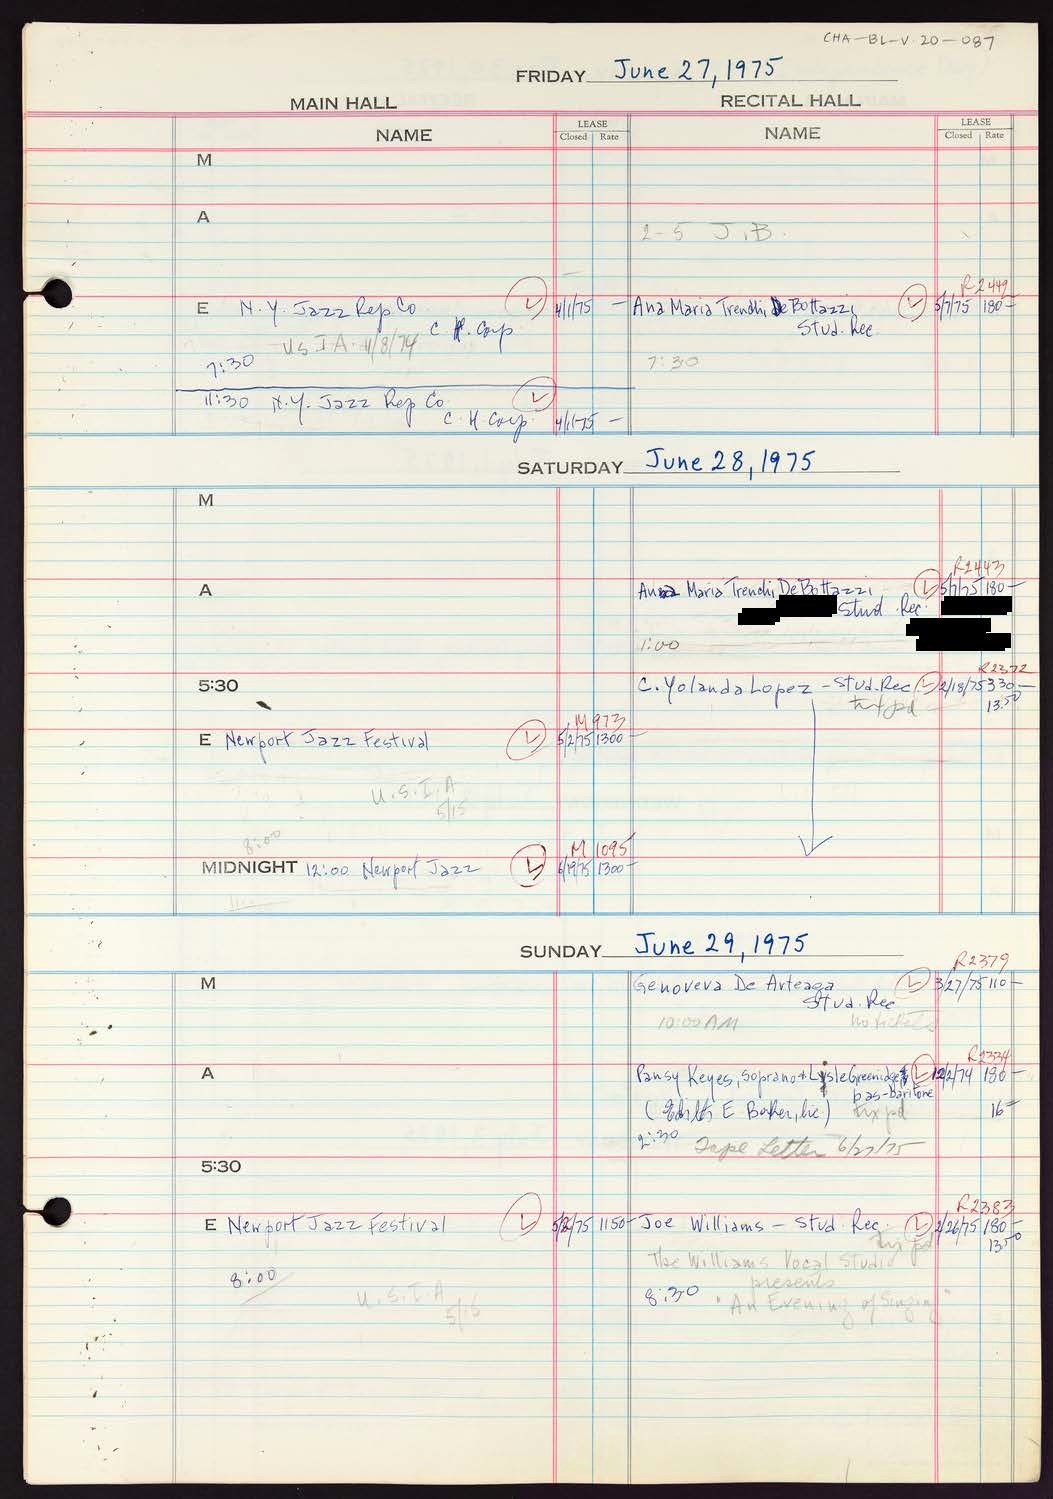 CHA-BL-V.20-087
FRIDAY June 27, 1975
MAIN HALL RECITAL HALL
NAME LEASE Closed Rate NAME LEASE Closed Rate
M
A
2-5 J.B.
R2449
E N.Y. Jazz Rep Co 4/1/75 - Ana Maria Trenchi De Bottazzi 5/7/75 180-
C.H. Corp Stud. Rec
USIA 4/8/74
7:30 7:30
11:30 N.Y. Jazz Rep Co
C.H. Corp 4/1/75 -
SATURDAY June 28, 1975
M
R2443
A Ana Maria Trenchi De Bottazzi 5/7/75 180-
Stud. Rec.
1:00
R2372
5:30 C. Yolanda Lopez - Stud. Rec 2/18/75 330-
tix pd 13.50
M 973
E Newport Jazz Festival 5/2/75 1300-
U.S.I.A
5/15
8:00
M 1095
MIDNIGHT 12:00 Newport Jazz 6/19/75 1300-
SUNDAY June 29, 1975
R2379
M Genoveva De Arteaga 3/27/75 110-
Stud. Rec
10:00 AM no tickets
R2334
A Pansy Keyes, Soprano + Lysle Greenidge 12/2/74 180-
bas-baritone
(Edith E Baker, lic) tix pd 16-
2:30 Tape Letter 6/27/75
5:30
R2383
E Newport Jazz Festival 5/2/75 1150- Joe Williams - Stud. Rec. 2/26/75 180-
tix pd 13.50
The Williams Vocal Studio
8:00 presents
U.S.I.A 8:30 "An Evening of Singing"
5/15